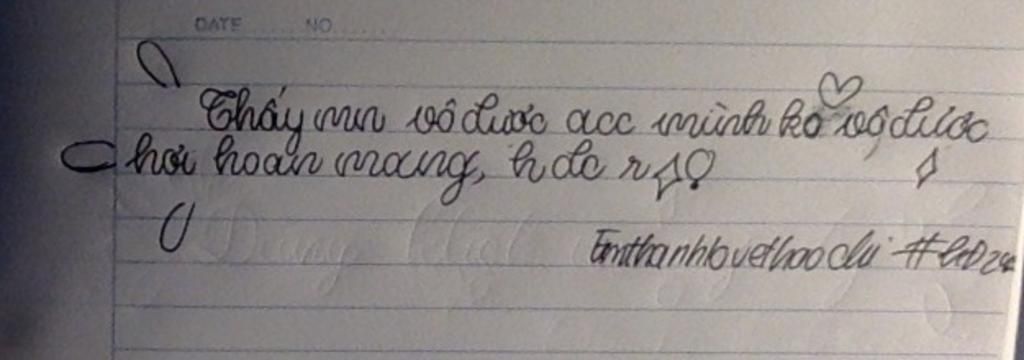 DATE NO
Thấy mn vô được acc mình ko vô được
hơi hoan mang, h đc r
Emthanhlovethaochi